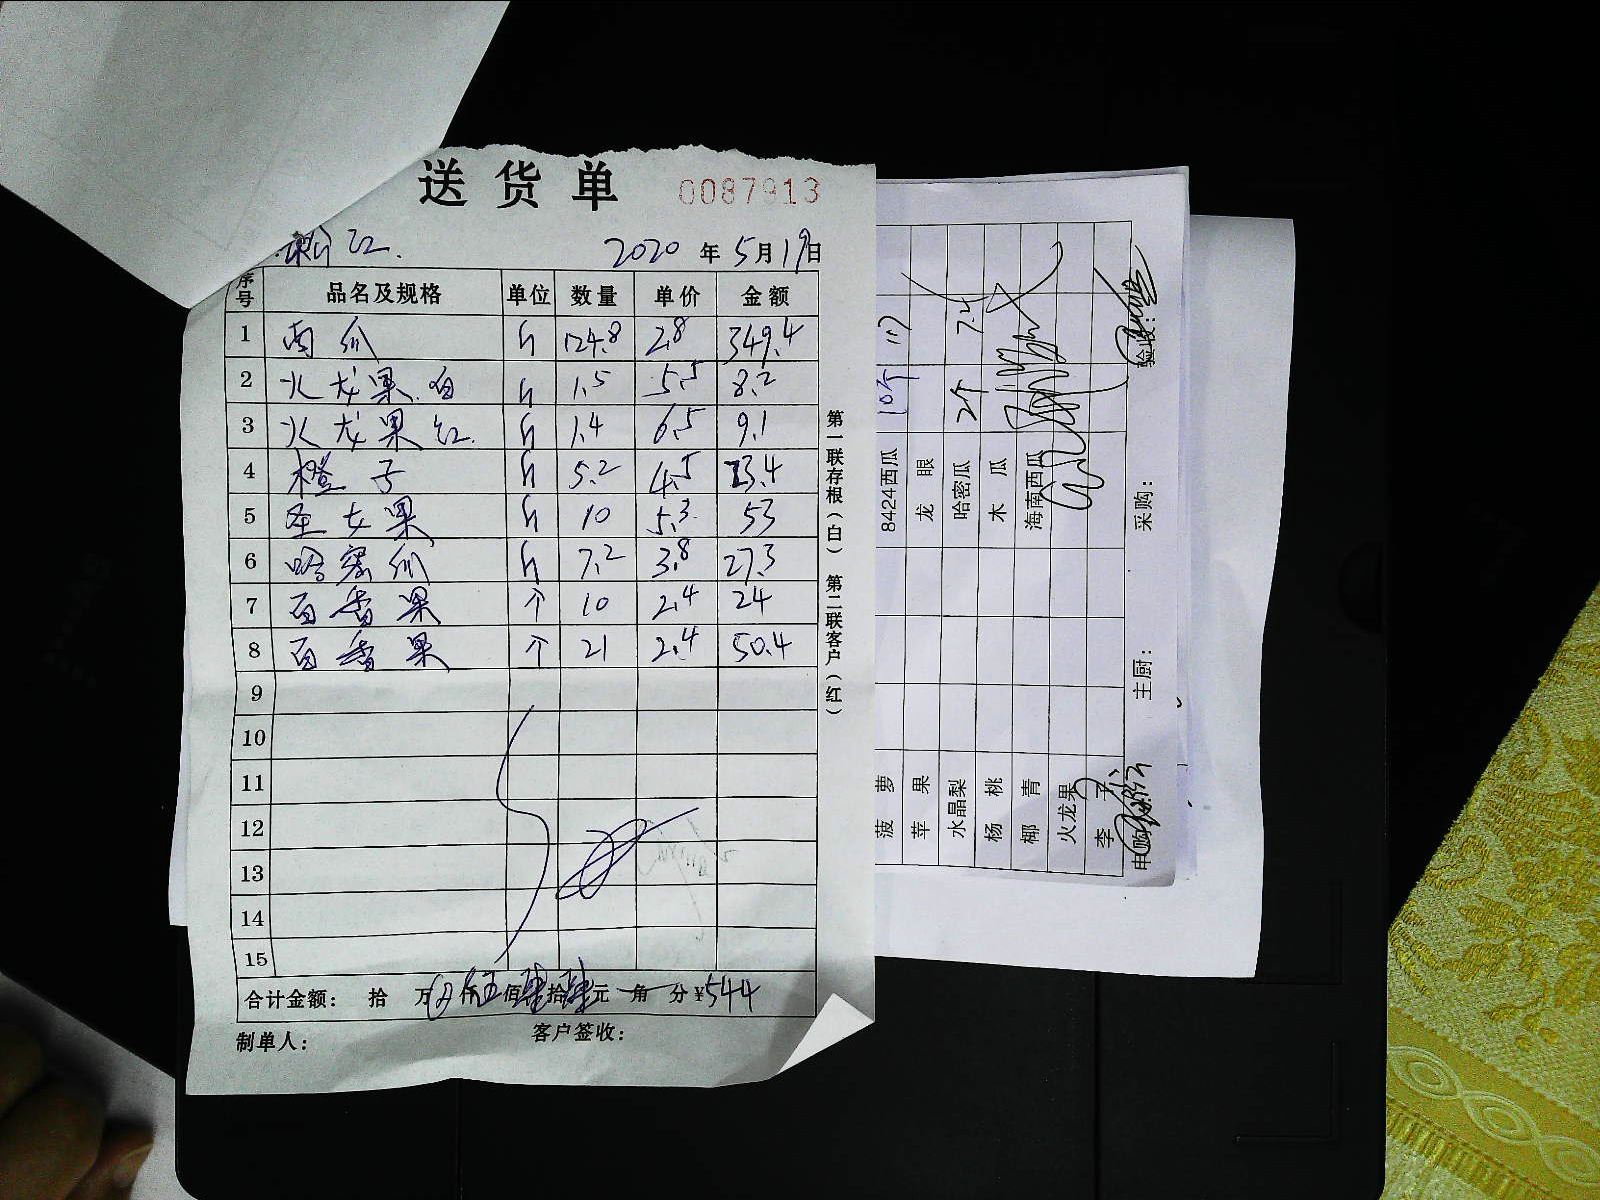 送货单 0087913
2020 年 5 月 19 日
序号 品名及规格 单位 数量 单价 金额
1 南瓜 斤 124.8 2.8 349.4
2 火龙果.白 斤 1.5 5.5 8.2
3 火龙果 红. 斤 1.4 6.5 9.1
4 橙子 斤 5.2 4.5 23.4
5 圣女果 斤 10 5.3 53
6 哈密瓜 斤 7.2 3.8 27.3
7 百香果 个 10 2.4 24
8 百香果 个 21 2.4 50.4
9
10
11
12
13
14
15
合计金额: 拾 万 仟伍佰肆拾肆元 角 分¥544
制单人: 客户签收:
第一联存根(白) 第二联客户(红)
菠萝 8424西瓜 10个
苹果 龙眼
水晶梨 哈密瓜 2个 7.2
杨桃 木瓜
椰青 海南西瓜
火龙果
李子
申购: 主厨: 采购: 验收: